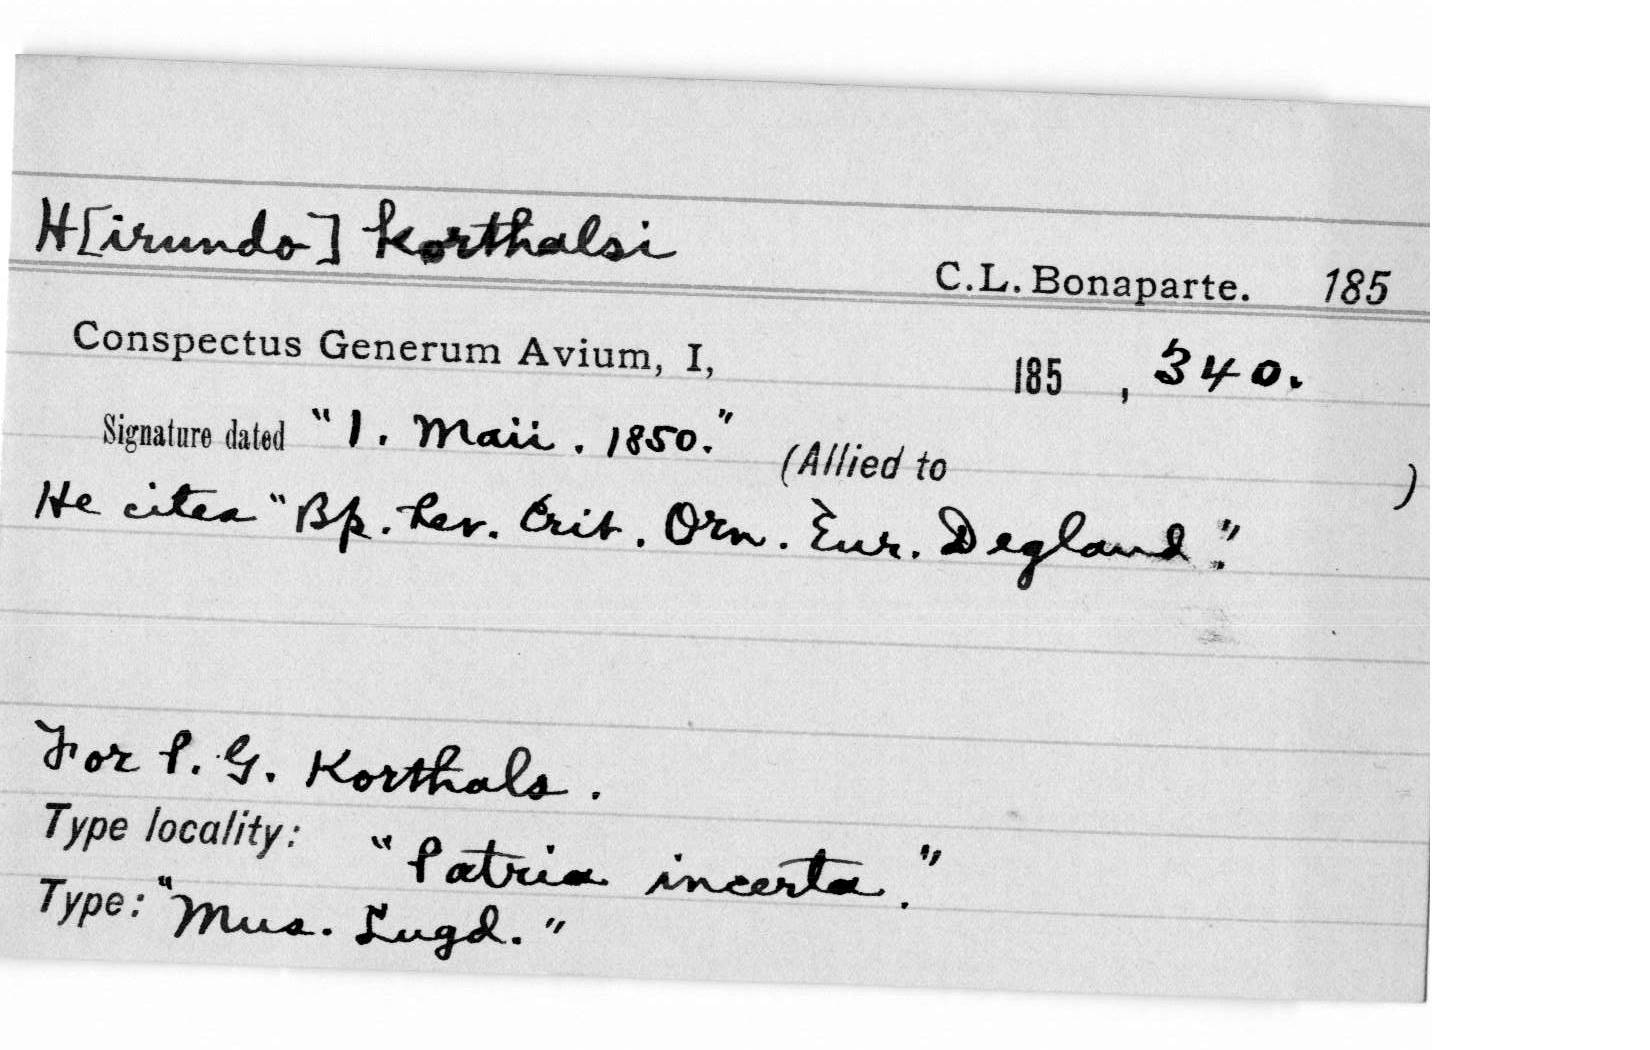 H[irundo] korthalsi
C.L. Bonaparte. 185
Conspectus Generum Avium, I, 185 , 340.
Signature dated "1. Maii. 1850." (Allied to )
He cites "Bp. Rev. Crit. Orn. Eur. Degland."
For P. G. Korthals.
Type locality: "Patria incerta."
Type: "Mus. Lugd."